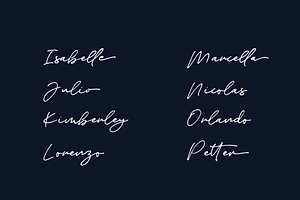 Isabelle
Julio
Kimberley
Lorenzo
Marcella
Nicolas
Orlando
Petter